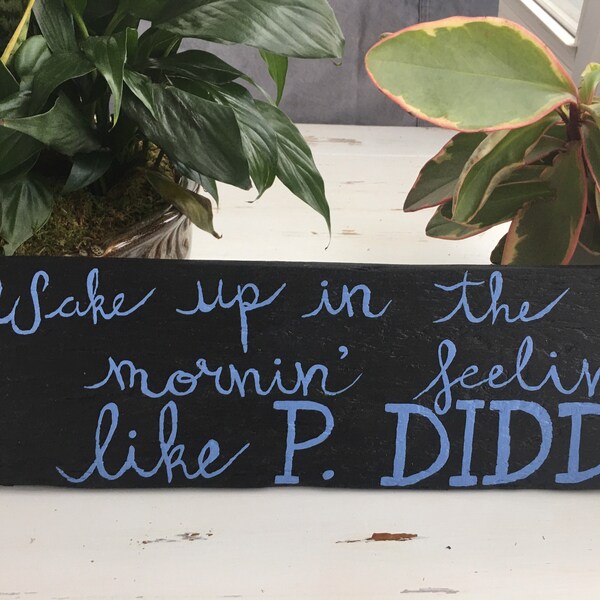 Wake up in the
mornin' feelin
like P. DIDD